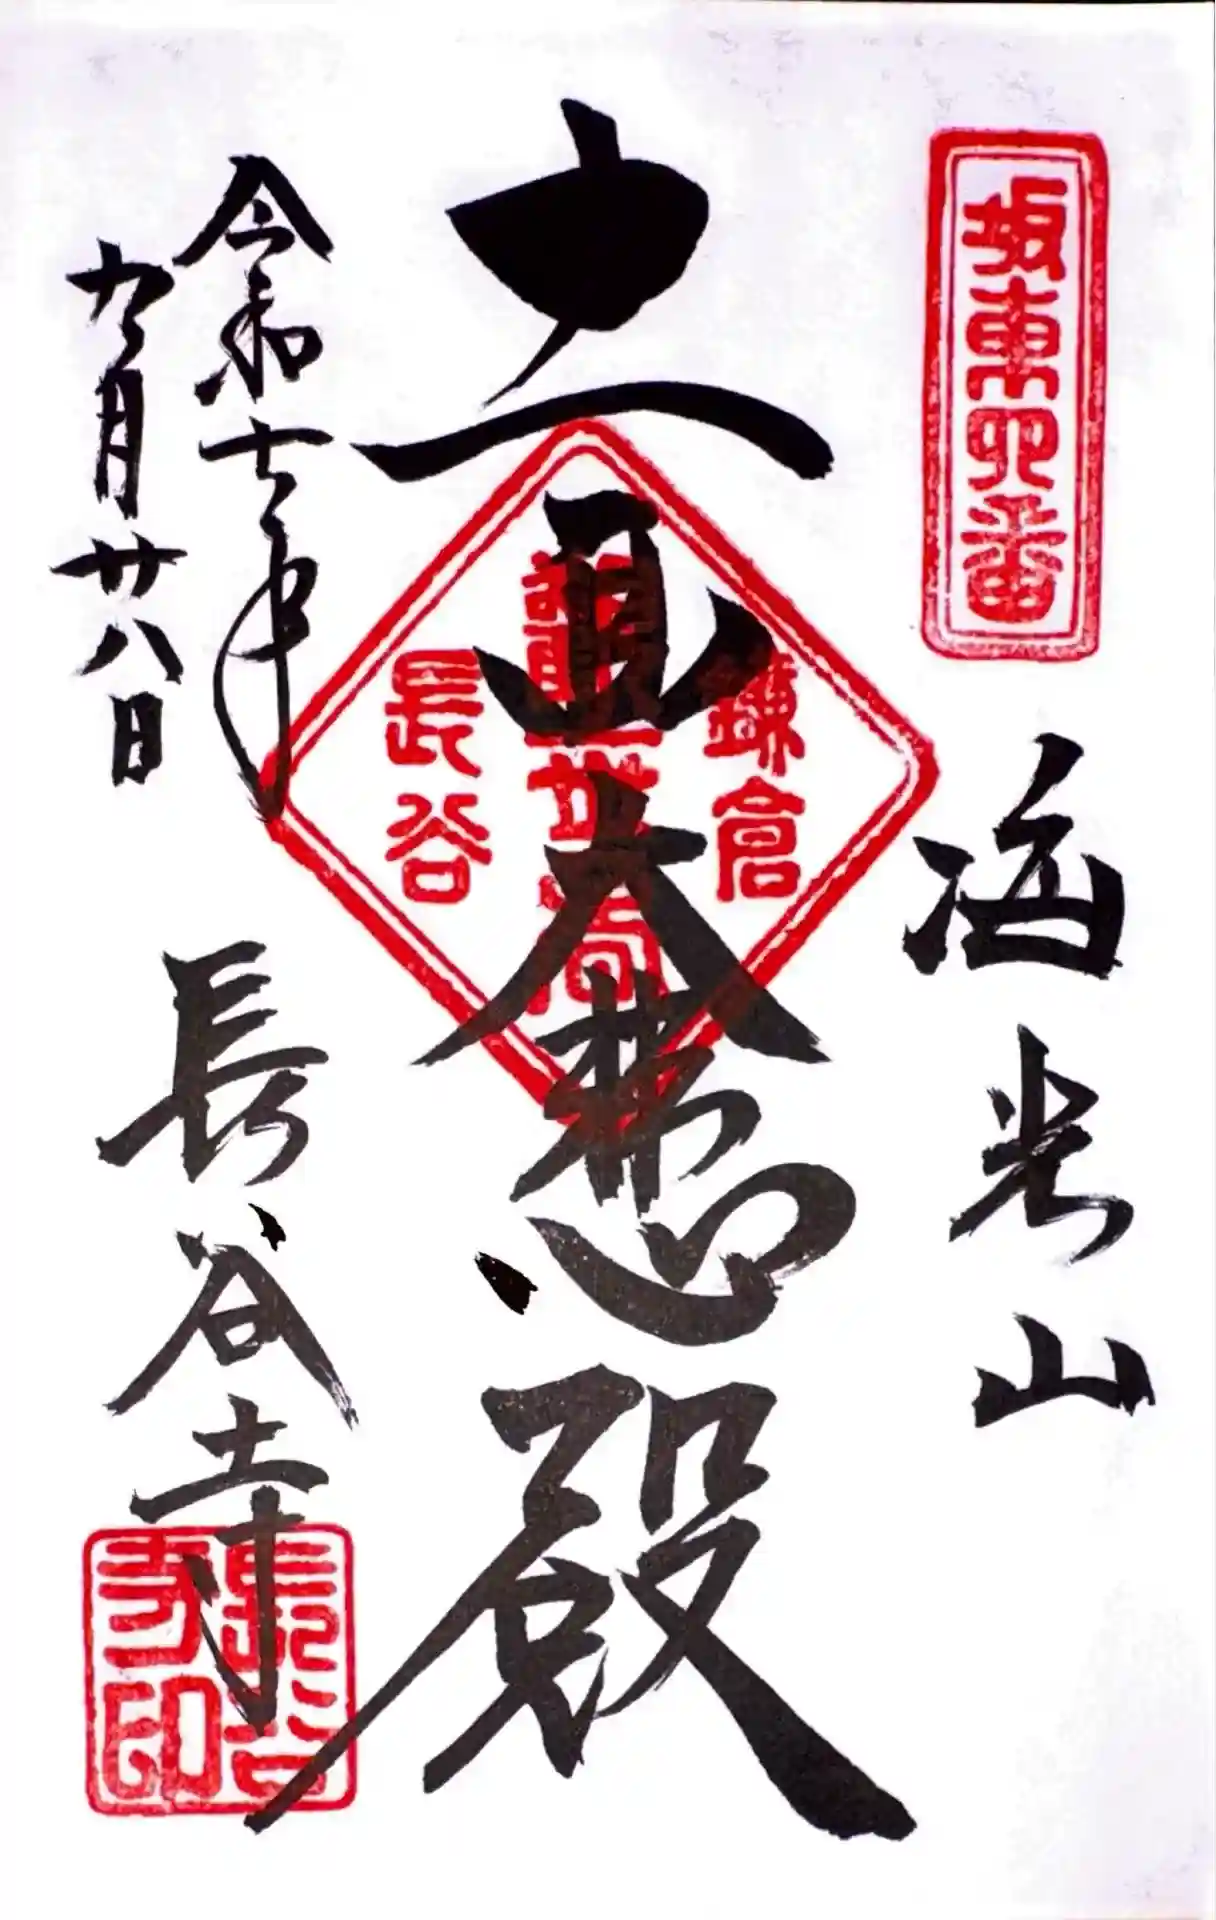 坂東四番
海光山
十一面大悲殿
鎌倉
觀世音
長谷
令和七年
九月廿八日
長谷寺
長谷寺印